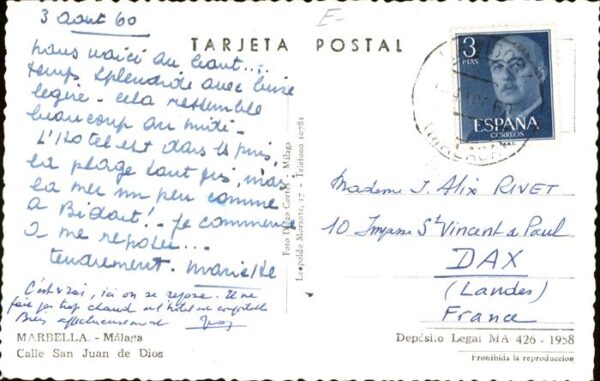 3 Aout 60
TARJETA POSTAL
nous voici au haut....
temps splendide avec brise
légère - cela ressemble
beaucoup au midi -
L'Hotel est dans le
la plage tout mais
la mer un peu comme
à Bidart! - je commence
à me reposer...
tendrement. Marielle
C'est vrai, ici on se repose. Il ne
fait pas trop chaud hôtel confortable
Bien affectueusement
MARBELLA. - Málaga
Calle San Juan de Dios
Foto Diego Cortés - Málaga
Leopoldo Morante, 17 - Teléfono 10781
3
PTAS
ESPAÑA
CORREOS
Madame J. Alix RIVET
10 Impasse St Vincent de Paul
DAX
(Landes)
France
Depósito Legal MA 426 - 1958
Prohibida la reproducción